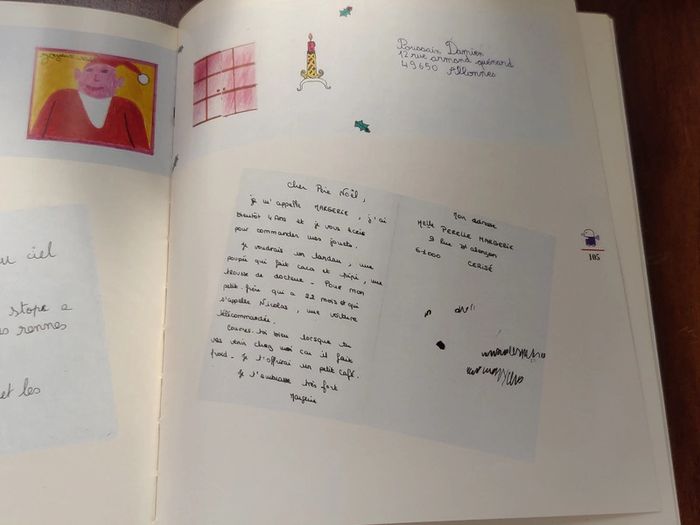 Joyeux
u ciel
stope a
s rennes
et les
Poussain Damien
12 rue armand guénard
49650 Allonnes
Cher Père Noël,
je m'appelle MARGERIE, j'ai
bientôt 4 Ans et je vous écris
pour commander mes jouets.
Je voudrais un landau, une
poupée qui fait caca et pipi, une
trousse de docteur - Pour mon
petit frère qui a 22 mois et qui
s'appelle Nicolas, une voiture
télécommandée.
Couvres-toi bien lorsque tu
vas venir chez moi car il fait
froid - Je t'offrirai un petit café.
Je t'embrasse très fort
Margerie
Mon adresse
Melle PERELLE MARGERIE
9 Rue d'alençon
61000 CERISÉ
105